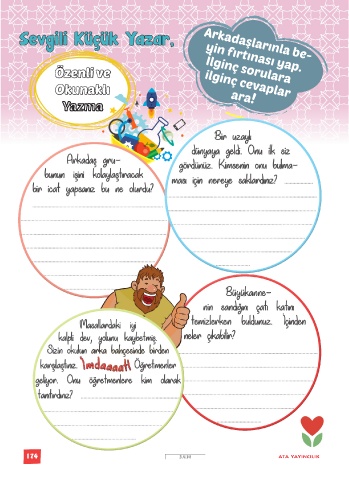 Sevgili Küçük Yazar,
Arkadaşlarınla be-
yin fırtınası yap,
İlginç sorulara
ilginç cevaplar
ara!
Özenli ve
Okunaklı
Yazma
Arkadaş gru-
bunun işini kolaylaştıracak
bir icat yapsanız bu ne olurdu?
Bir uzaylı
dünyaya geldi. Onu ilk siz
gördünüz. Kimsenin onu bulma-
ması için nereye saklardınız?
Büyükanne-
nin sandığını çatı katını
temizlerken buldunuz. İçinden
neler çıkabilir?
Masallardaki iyi
kalpli dev, yolunu kaybetmiş.
Sizin okulun arka bahçesinde birden
karşılaştınız. İmdaaaat! Öğretmenler
geliyor. Onu öğretmenlere kim olarak
tanıtırdınız?
174
ATA YAYINCILIK